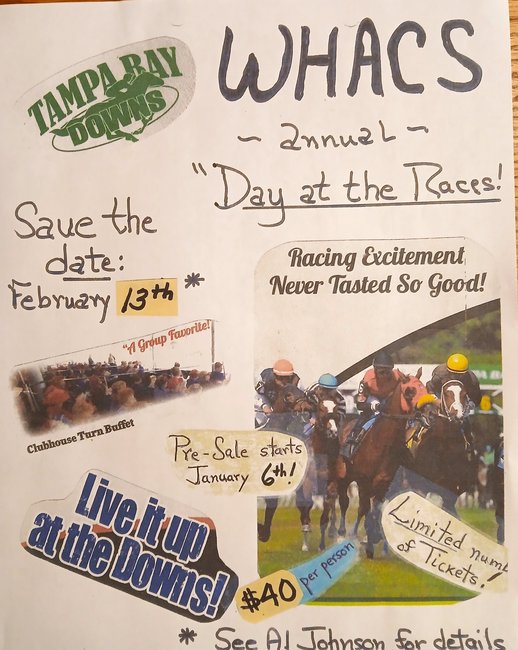 TAMPA BAY
DOWNS
WHACS
~ annual ~
"Day at the Races!
Save the
date:
February 13th *
Racing Excitement
Never Tasted So Good!
"A Group Favorite!
Clubhouse Turn Buffet
Pre-Sale starts
January 6th!
Live it up
at the Downs!
Limited num
of Tickets!
$40 per person
* See Al Johnson for details